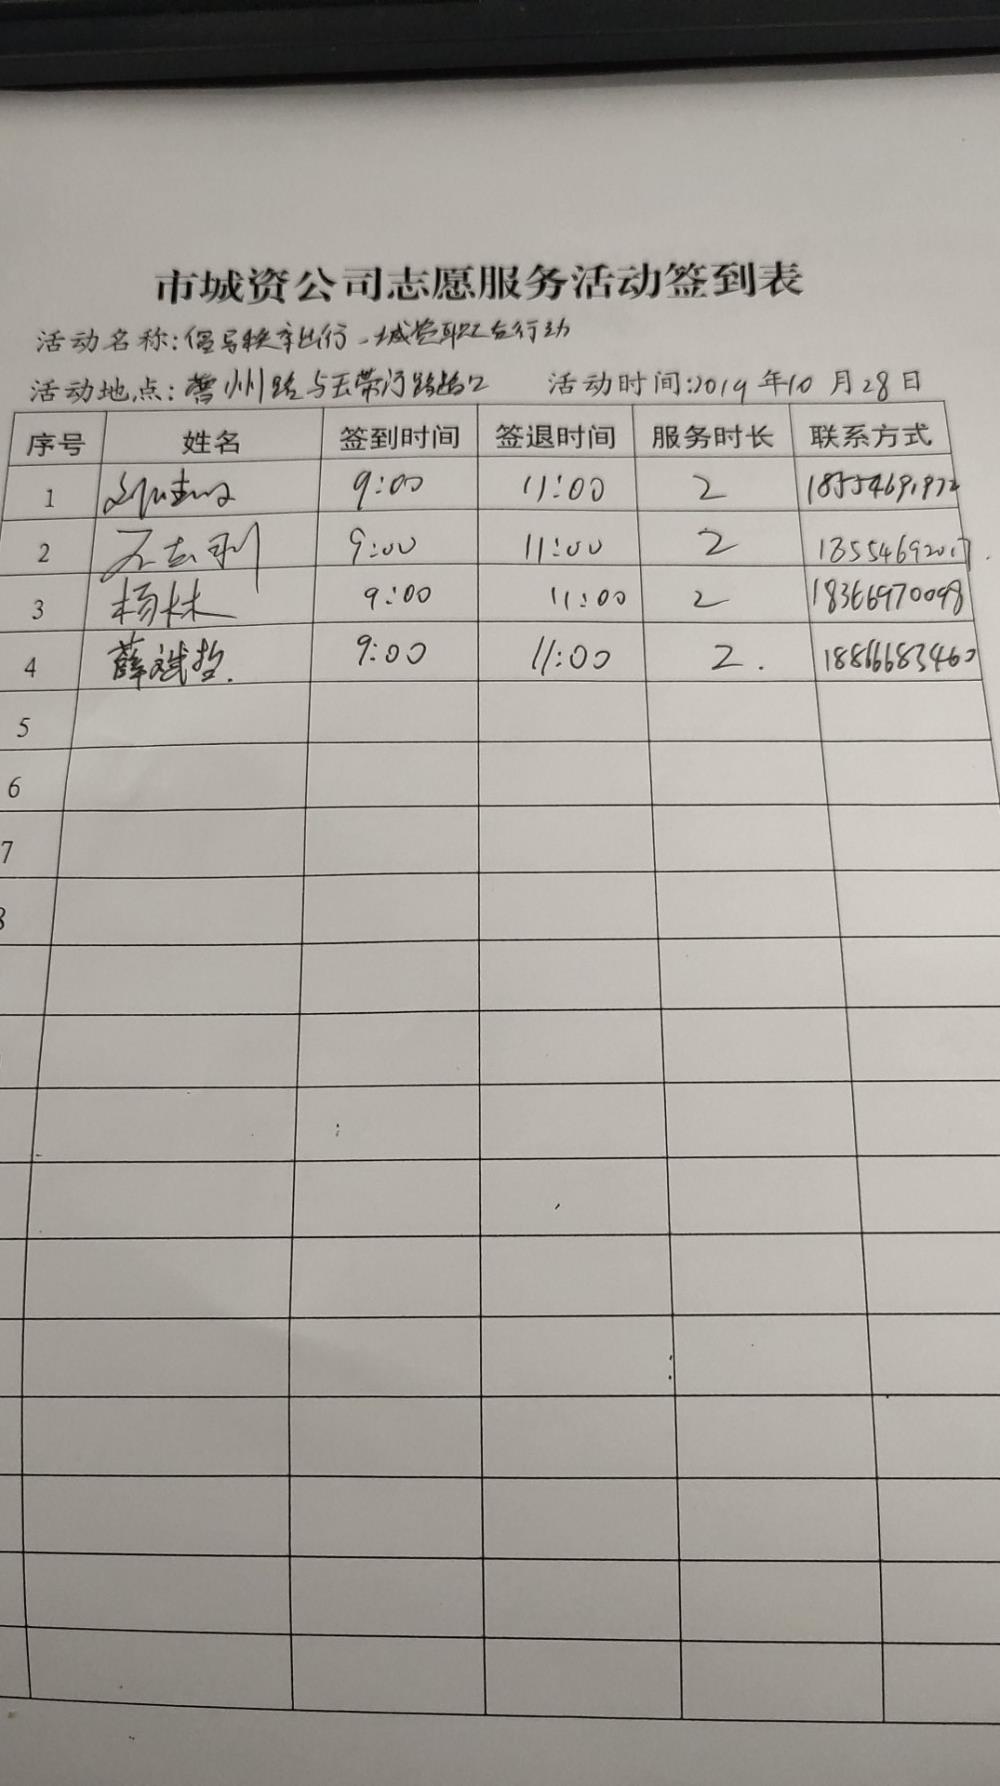 市城资公司志愿服务活动签到表
活动名称:倡导秩序出行、城管联合行动
活动地点:曹州路与玉带河路路口 活动时间:2019年10月28日
序号 姓名 签到时间 签退时间 服务时长 联系方式
1 9:00 11:00 2 18554691972
2 9:00 11:00 2
3 杨林 9:00 11:00 2 18366970098
4 薛斌哲. 9:00 11:00 2. 18866683460
5
6
7
8